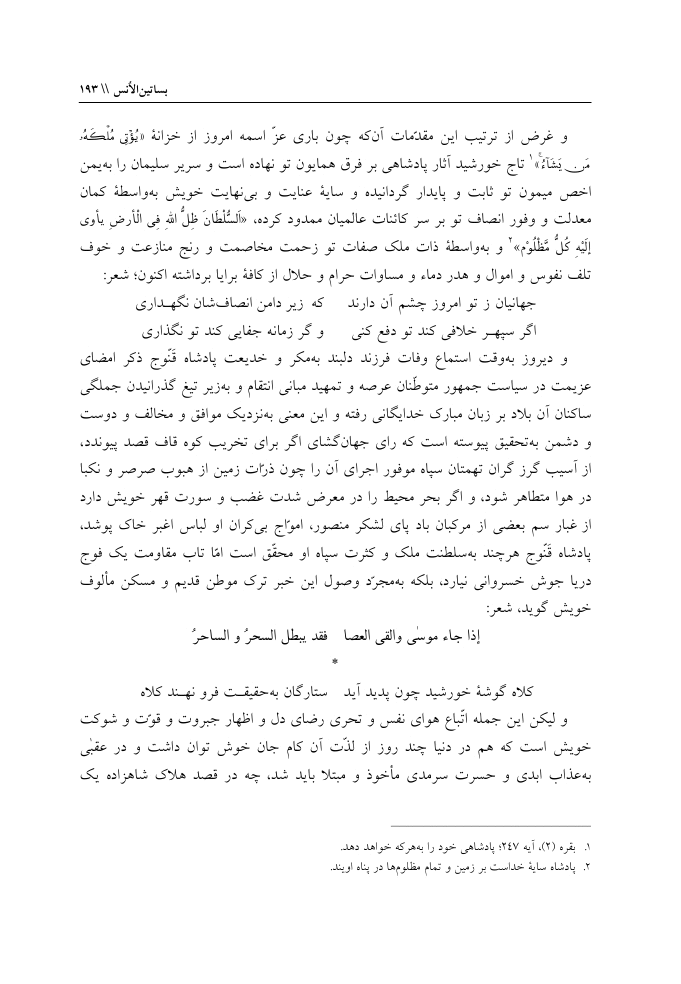 بساتین‌الأنس \\ ۱۹۳
و غرض از ترتیب این مقدّمات آن‌که چون باری عزّ اسمه امروز از خزانهٔ «یُؤْتِی مُلْكَهُۥ
مَن يَشَآءُۚ»۱ تاج خورشید آثار پادشاهی بر فرق همایون تو نهاده است و سریر سلیمان را به‌یمن
اخص میمون تو ثابت و پایدار گردانیده و سایهٔ عنایت و بی‌نهایت خویش به‌واسطهٔ کمان
معدلت و وفور انصاف تو بر سر کائنات عالمیان ممدود کرده، «اَلسُّلْطَانَ ظِلُّ اللهِ فِی الْأرضِ یأوی
إلَیْهِ کُلُّ مَّظْلُوْمٍ»۲ و به‌واسطهٔ ذات ملک صفات تو زحمت مخاصمت و رنج منازعت و خوف
تلف نفوس و اموال و هدر دماء و مساوات حرام و حلال از کافهٔ برایا برداشته اکنون؛ شعر:
جهانیان ز تو امروز چشم آن دارند که زیر دامن انصاف‌شان نگهـداری
اگر سپهـر خلافی کند تو دفع کنی و گر زمانه جفایی کند تو نگذاری
و دیروز به‌وقت استماع وفات فرزند دلبند به‌مکر و خدیعت پادشاه قَنّوج ذکر امضای
عزیمت در سیاست جمهور متوطّنان عرصه و تمهید مبانی انتقام و به‌زیر تیغ گذرانیدن جملگی
ساکنان آن بلاد بر زبان مبارک خدایگانی رفته و این معنی به‌نزدیک موافق و مخالف و دوست
و دشمن به‌تحقیق پیوسته است که رای جهان‌گشای اگر برای تخریب کوه قاف قصد پیوندد،
از آسیب گرز گران تهمتان سپاه موفور اجرای آن را چون ذرّات زمین از هبوب صرصر و نکبا
در هوا متطاهر شود، و اگر بحر محیط را در معرض شدت غضب و سورت قهر خویش دارد
از غبار سم بعضی از مرکبان باد پای لشکر منصور، امواج بی‌کران او لباس اغبر خاک پوشد،
پادشاه قَنّوج هرچند به‌سلطنت ملک و کثرت سپاه او محقّق است امّا تاب مقاومت یک فوج
دریا جوش خسروانی نیارد، بلکه به‌مجرّد وصول این خبر ترک موطن قدیم و مسکن مألوف
خویش گوید، شعر:
إذا جاء موسیٰ والقی العصا فقد یبطل السحرُ و الساحرُ
*
کلاه گوشهٔ خورشید چون پدید آید ستارگان به‌حقیقـت فرو نهـند کلاه
و لیکن این جمله اتّباع هوای نفس و تحری رضای دل و اظهار جبروت و قوّت و شوکت
خویش است که هم در دنیا چند روز از لذّت آن کام جان خوش توان داشت و در عقبٰی
به‌عذاب ابدی و حسرت سرمدی مأخوذ و مبتلا باید شد، چه در قصد هلاک شاهزاده یک
۱. بقره (۲)، آیه ۲٤۷؛ پادشاهی خود را به‌هرکه خواهد دهد.
۲. پادشاه سایهٔ خداست بر زمین و تمام مظلوم‌ها در پناه اویند.